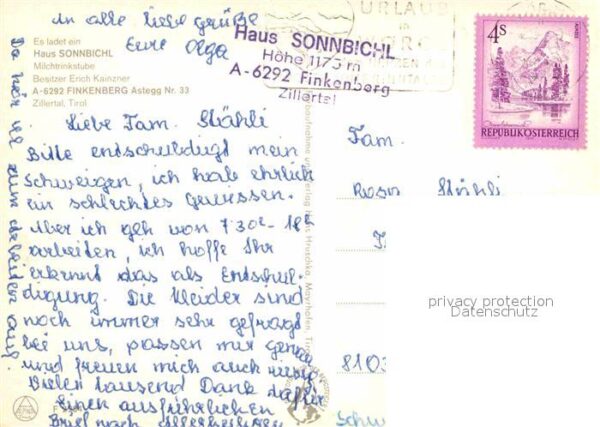 in alle liebe grüße
Eure Olga
Es ladet ein
Haus SONNBICHL
Milchtrinkstube
Besitzer Erich Kainzner
A-6292 FINKENBERG Astegg Nr. 33
Zillertal, Tirol
URLAUB
in
Haus SONNBICHL
Höhe 1175 m
A-6292 Finkenberg
Zillertal
4s
REPUBLIK ÖSTERREICH
Liebe Fam. Stähli
Bitte entschuldigt mein
Schweigen, ich habe ehrlich
ein schlechtes Gewissen.
Aber ich geh von 730 - 18
arbeiten, ich hoffe Ihr
erkennt das als Entschul-
digung. Die Kleider sind
noch immer sehr gefragt
bei uns, passen mir genau
und freuen mich auch
Vielen tausend Dank dafür
Einen ausführlichen
Brief nach Allerheiligen
zum arbeiten auf.
Fam.
Rosa Stähli
8103
Schw
Mayrhofen
privacy protection
Datenschutz